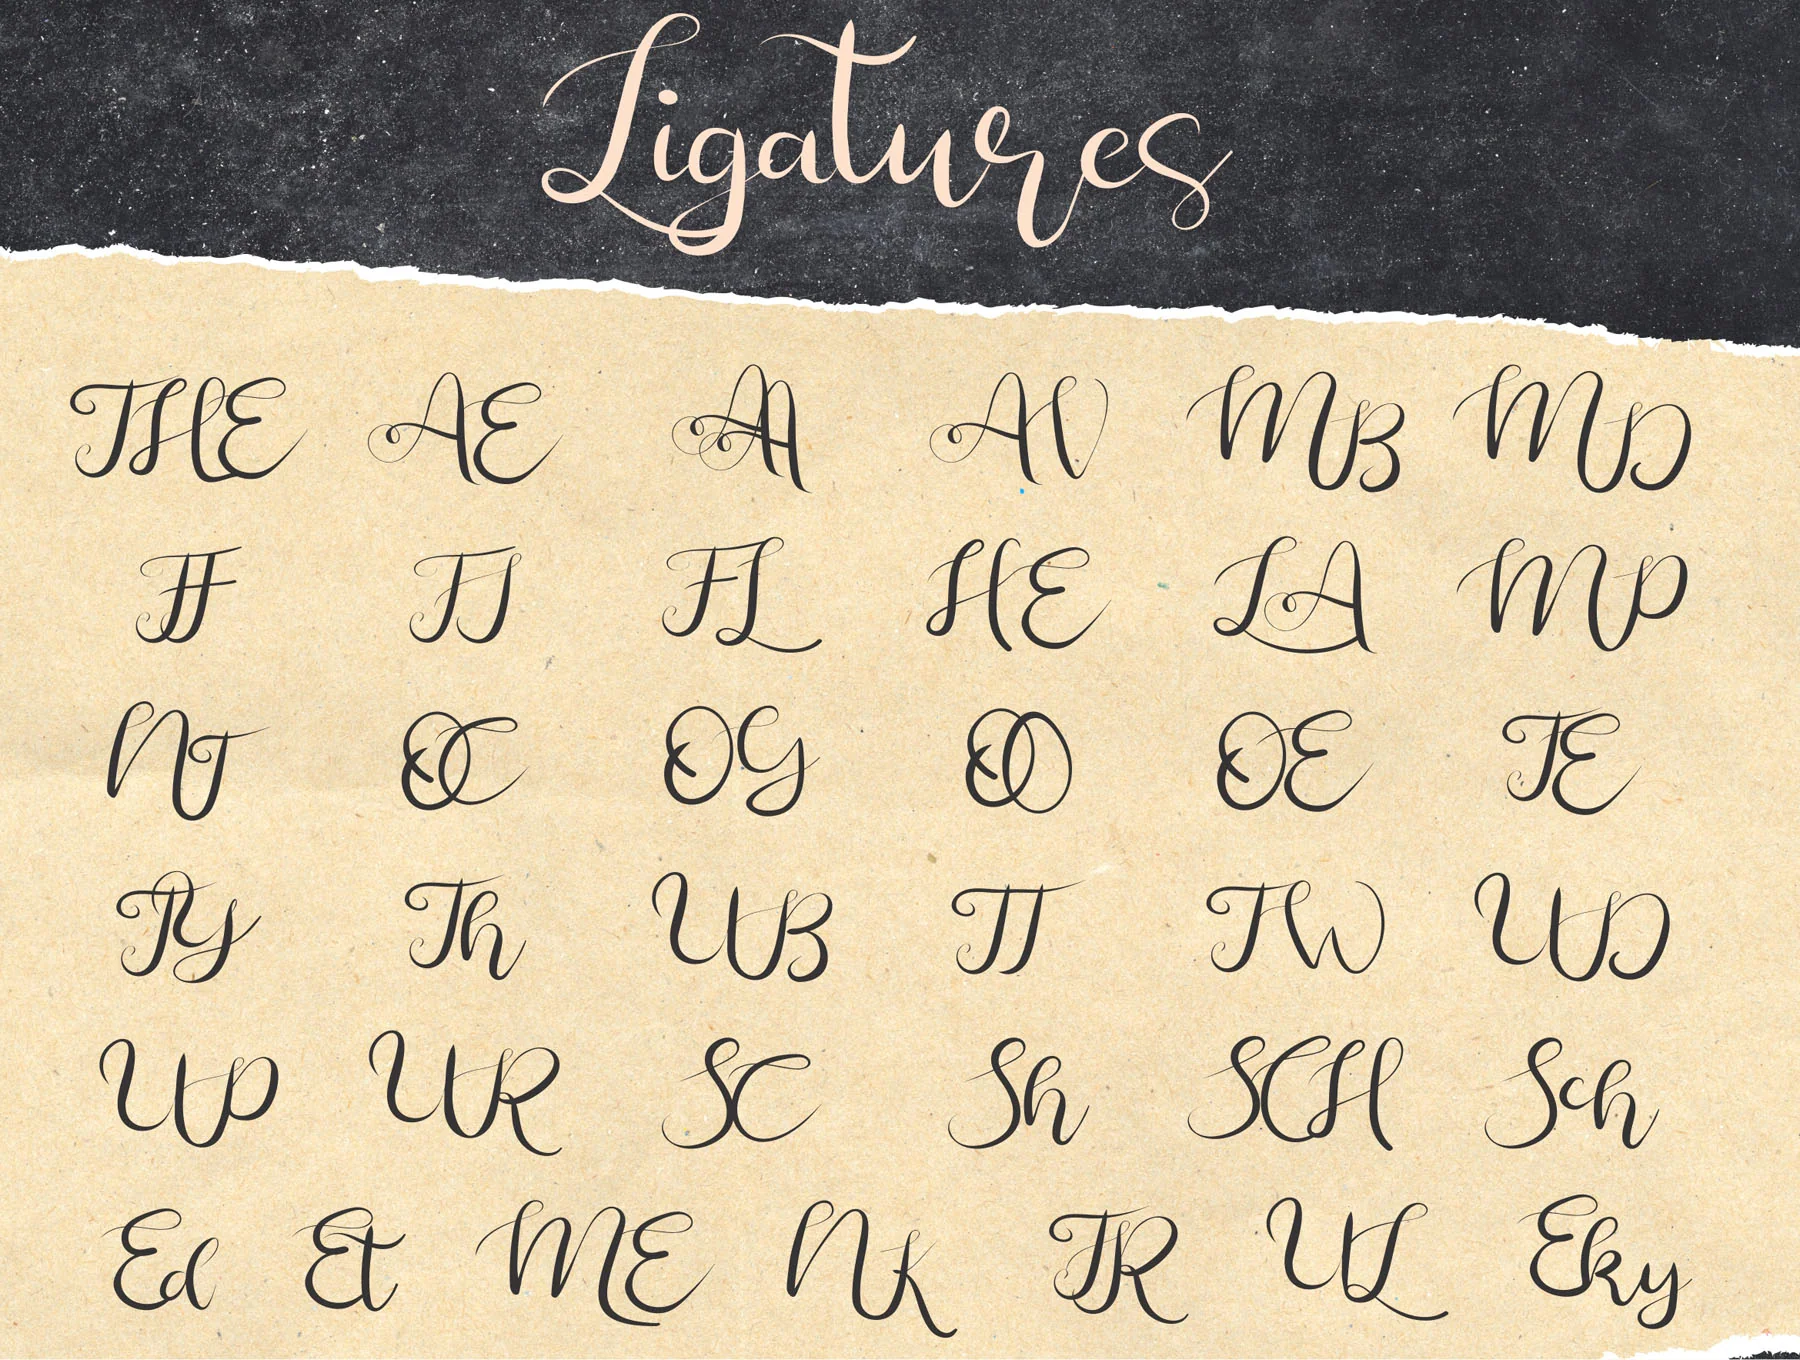 Ligatures
THE AE AA AV MB MD
FF FI FL HE LA MP
NT OC OG OO OE TE
TY Th UB TT TW UD
UP UR SC Sh SCH Sch
Ed Et ME NK TR UL Eky